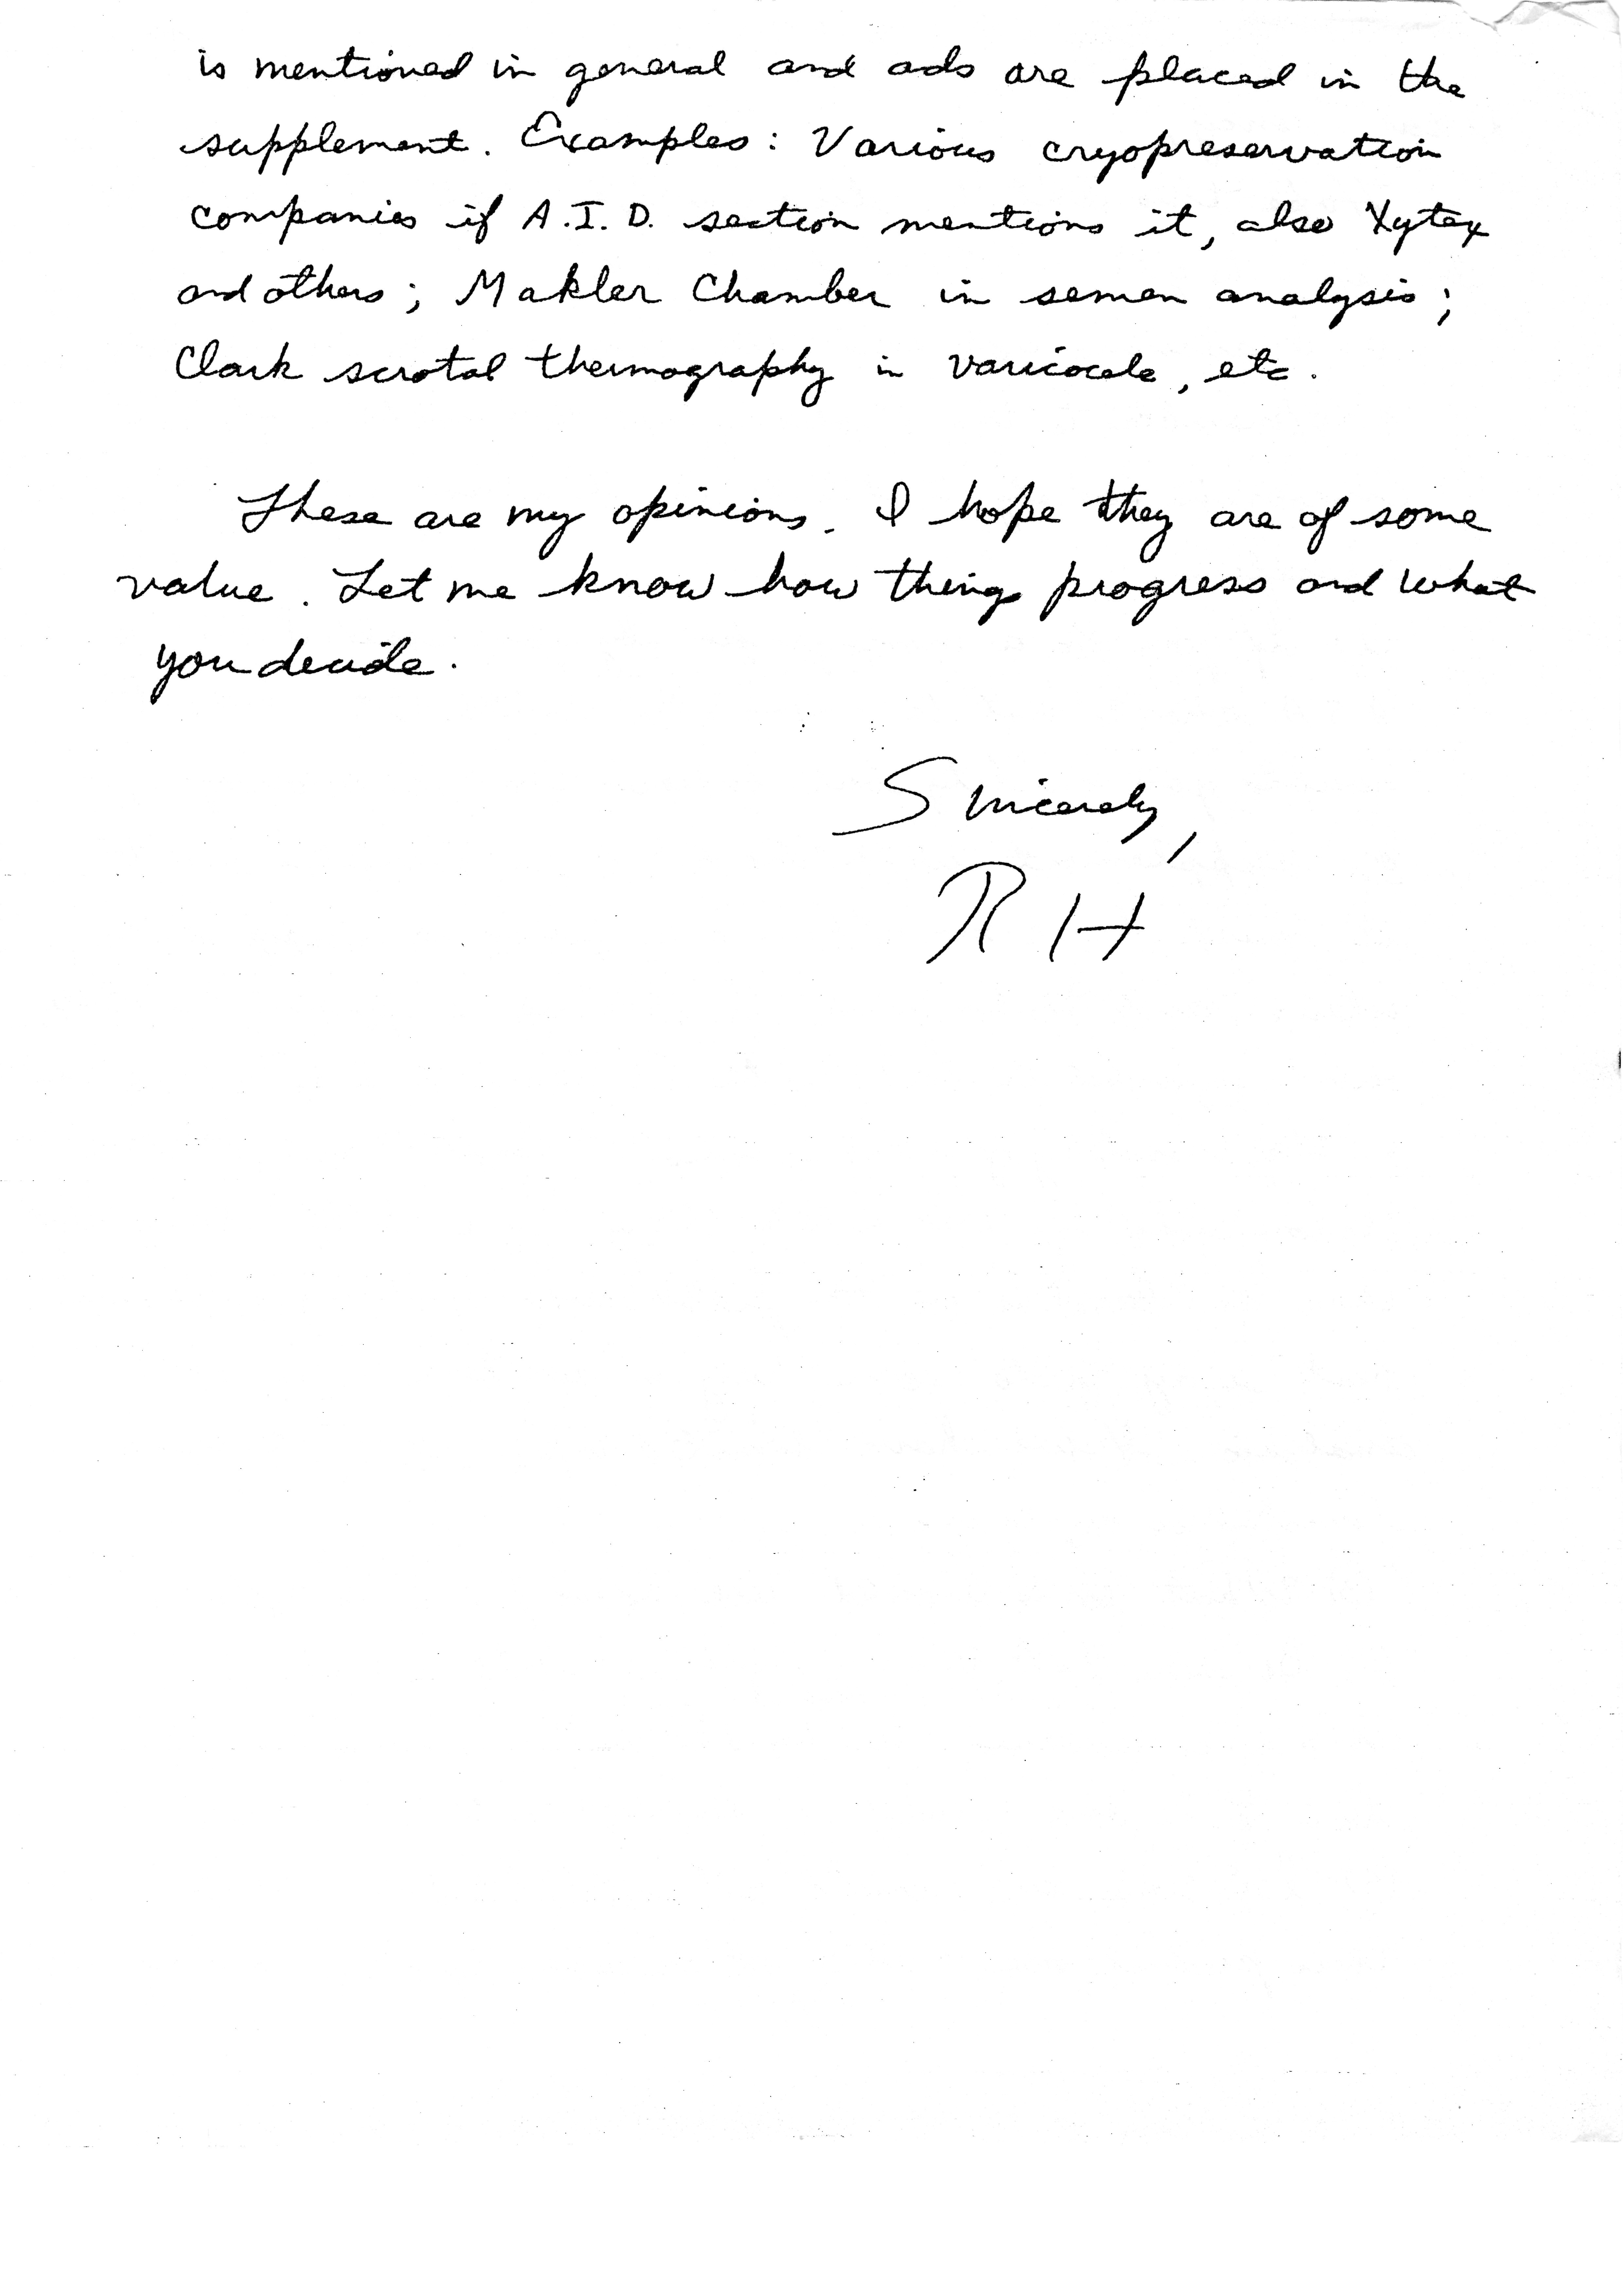 is mentioned in general and ads are placed in the
supplement. Examples: Various cryopreservation
companies if A.I.D. section mentions it, also Xytex
and others; Makler Chamber in semen analysis;
Clark scrotal thermography in varicocele, etc.
These are my opinions. I hope they are of some
value. Let me know how things progress and what
you decide.
Sincerely,
RH